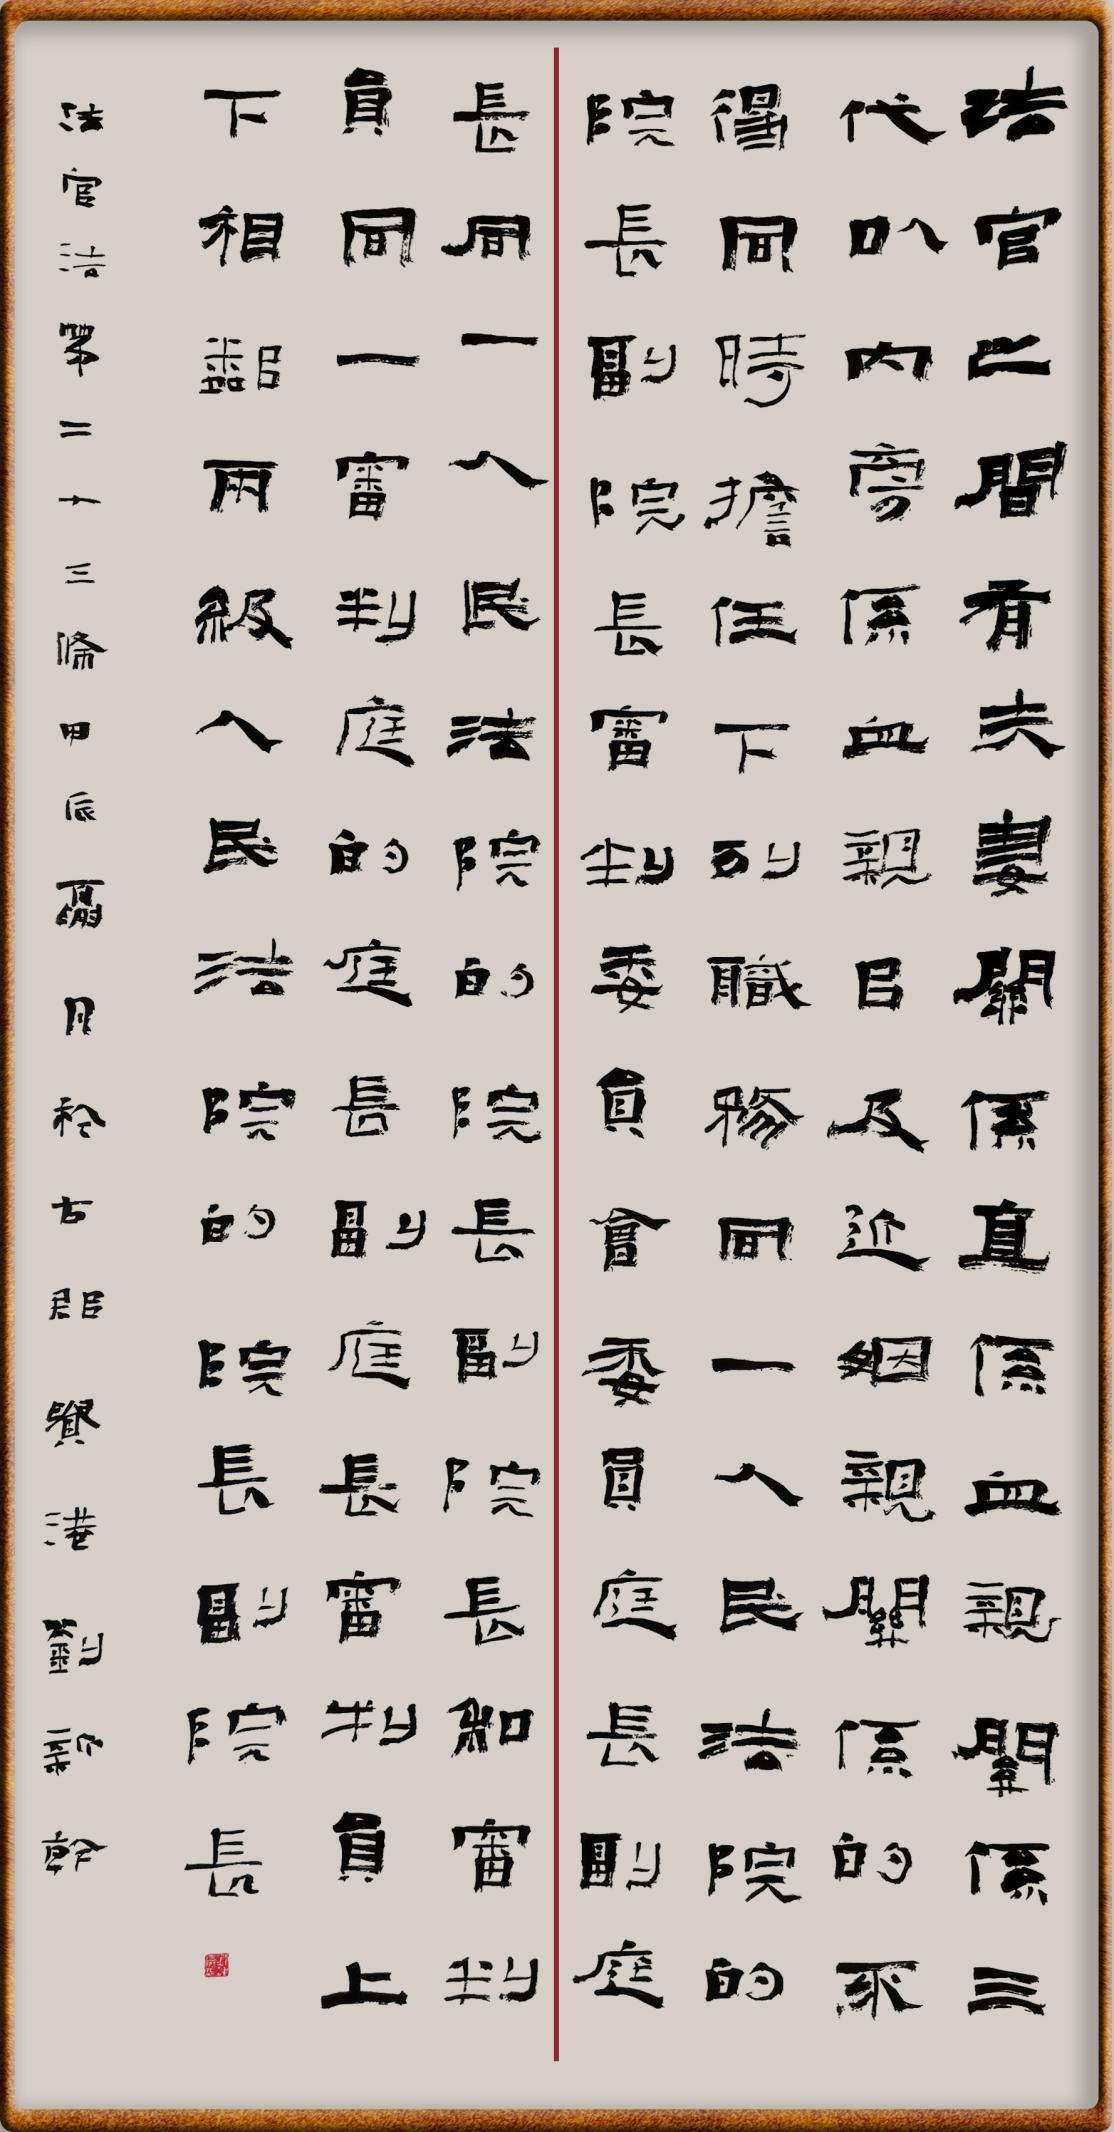 法官之間有夫妻關係直係血親關係三
代以内旁係血親以及近姻親關係的不
得同時擔任下列職務同一人民法院的
院長副院長審判委員會委員庭長副庭
長同一人民法院的院長副院長和審判
員同一審判庭的庭長副庭長審判員上
下相鄰兩級人民法院的院長副院長
法官法第二十三條甲辰月於古郡貴港劉乾